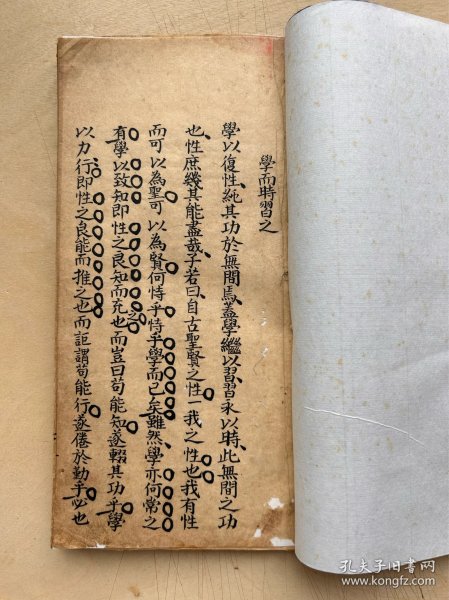 學而時習之
學以復性純其功於無間焉蓋學繼以習習永以時此無間之功
也性庶幾其能盡哉子若曰自古聖賢之性一我之性也我有性
而可以為聖可以為賢何恃乎恃乎學而已矣雖然學亦何常之
有學以致知即性之良知而充之也而豈曰苟能知遂輟其功乎學
以力行即性之良能而推之也而詎謂苟能行遂倦於勤乎必也
孔夫子旧书网
www.kongfz.com